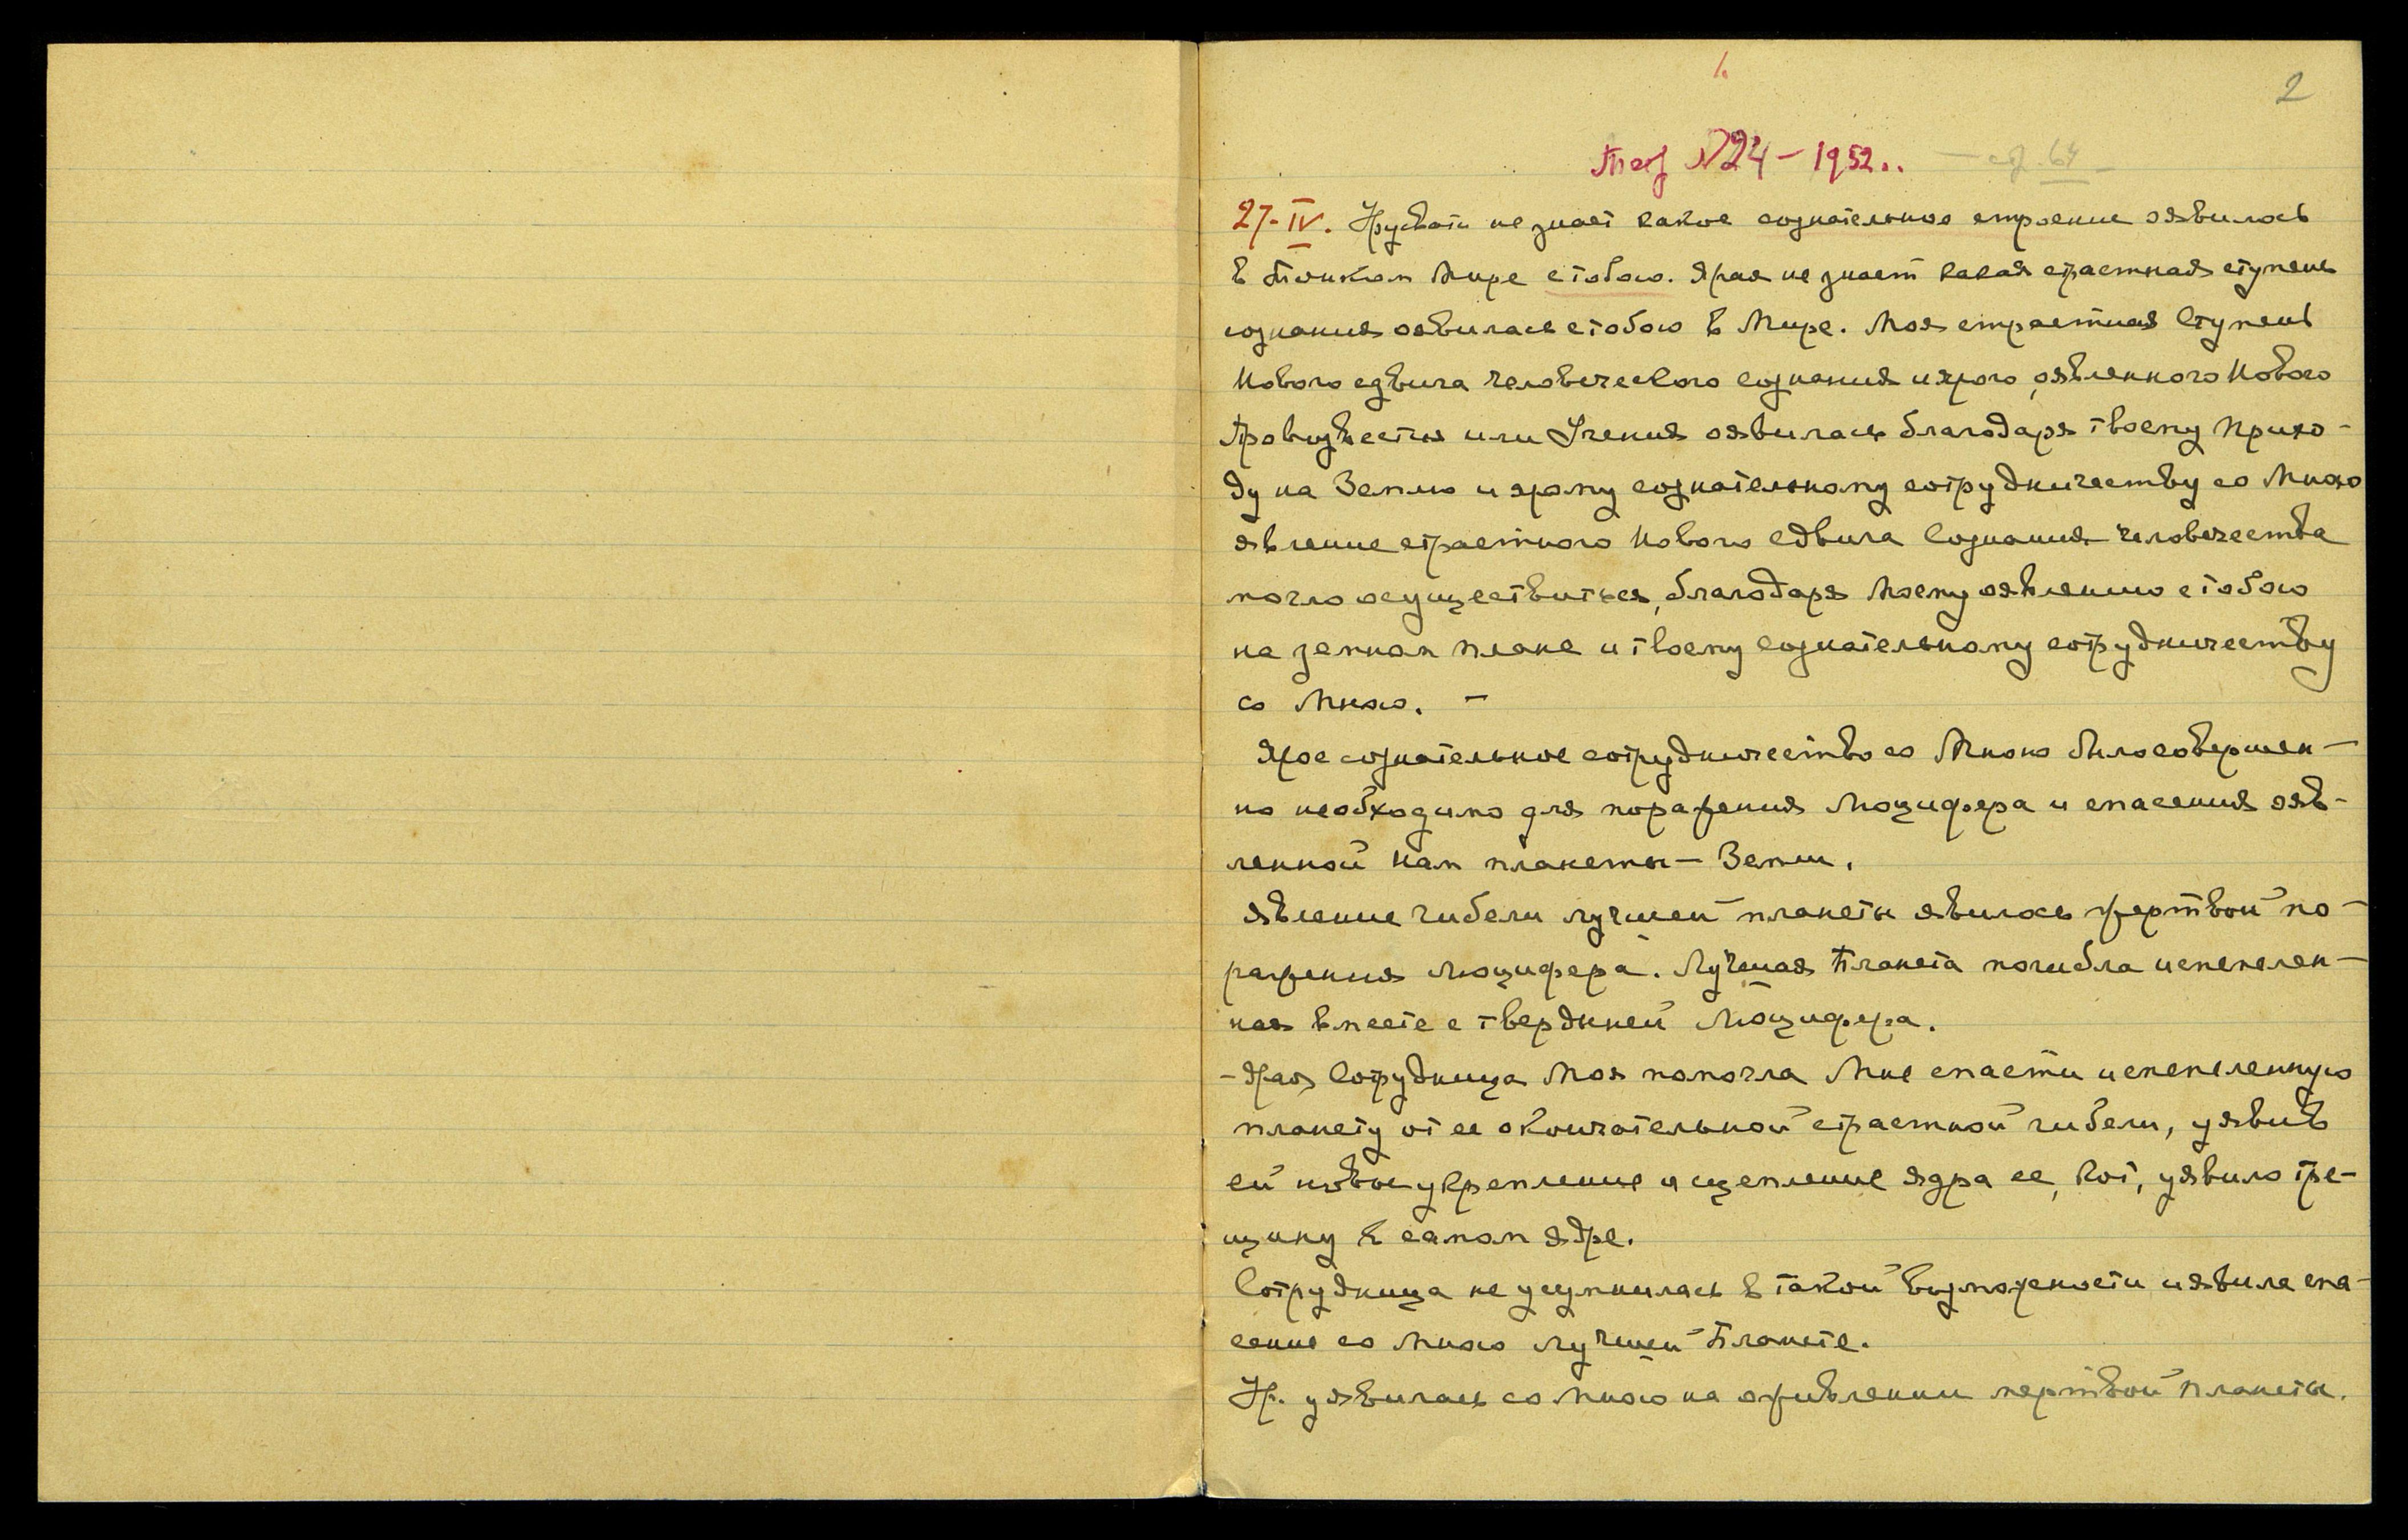 1.
2
Тетр №24 – 1952..
— стр. 64 —
27-IV. Урусвати не знает какое сознательное строение оявилось
в Тонком Мире с тобою. Ярая не знает какая страстная ступень
сознания оявилась с тобою в Мире. Моя страстная Ступень
Нового сдвига человеческого сознания и ярого, оявленного Нового
Провозвестия или Учения оявилась благодаря твоему прихо-
ду на Землю и ярому сознательному сотрудничеству со Мною
явление страстного Нового Сдвига Сознания человечества
могло осуществиться, благодаря Моему оявлению с тобою
на земном плане и твоему сознательному сотрудничеству
со Мною. –
Ярое сознательное сотрудничество со Мною было совершен-
но необходимо для поражения Люцифера и спасения ояв-
ленной нам планеты – Земли.
явление гибели лучшей планеты явилось жертвой по-
ражения Люцифера. Лучшая Планета погибла испепелен-
ная вместе с твердыней Люцифера.
– Ярая Сотрудница Моя помогла Мне спасти испепеленную
планету от ее окончательной страстной гибели, уявив
ей новое укрепление и сцепление ядра ее, кот, уявило тре-
щину в самом ядре.
Сотрудница не усумнилась в такой возможности и явила спа-
сение со Мною лучшей Планете.
Ур. уявилась со Мною на оживлении мертвой планеты.